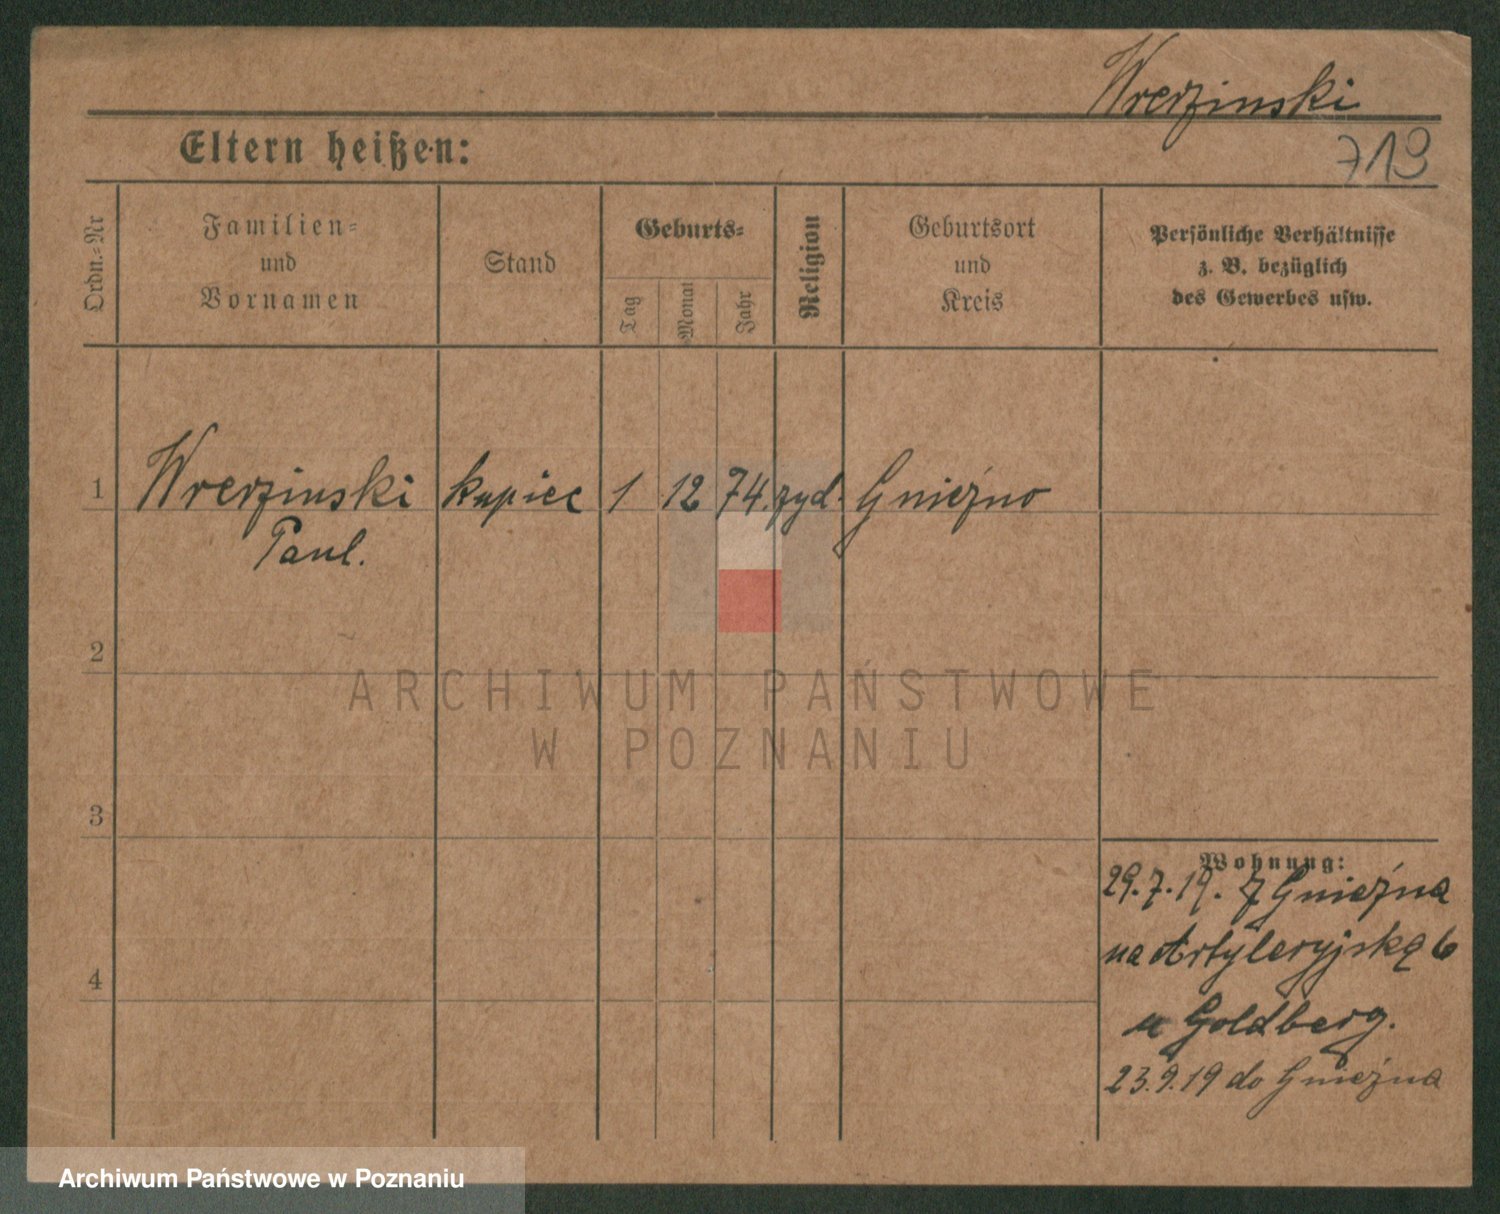 Wrerzinski
Eltern heißen:
719
Ordn.=Nr
Familien=
und
Vornamen
Stand
Geburts=
Tag
Monat
Jahr
Religion
Geburtsort
und
Kreis
Persönliche Verhältnisse
z. B. bezüglich
des Gewerbes usw.
1 Wrerzinski kupiec 1 12 74. żyd. Gnieźno
Paul.
2
ARCHIWUM PAŃSTWOWE
W POZNANIU
3
Wohnung:
29.7.19. z Gnieźna
na Artyleryjską 6
u Goldberg.
4
23.9.19 do Gnieźna
Archiwum Państwowe w Poznaniu